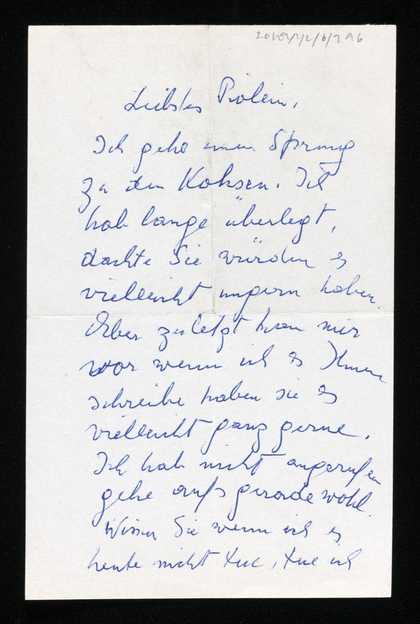 Liebstes Piolein,
Ich gehe einen Sprung
zu den Kohsen. Ich
hab lange überlegt,
dachte Sie würden es
vielleicht ungern haben.
Aber zuletzt kam mir
vor wenn ich es Ihnen
schreibe haben sie es
vielleicht ganz gerne.
Ich hab nicht angerufen
gehe aufs geradewohl.
Wissen Sie wenn ich es
heute nicht tue, tue ich